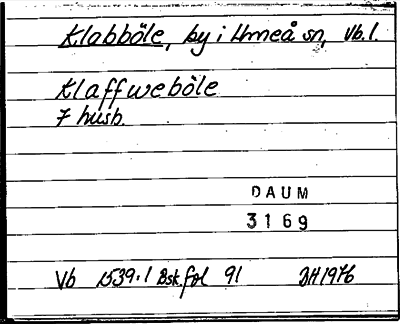 Klabböle, by i Umeå sn, Vb.l.
Klaffweböle
7 hush.
DAUM
3169
Vb 1539:1 Bsk.fol 91 DH 1976